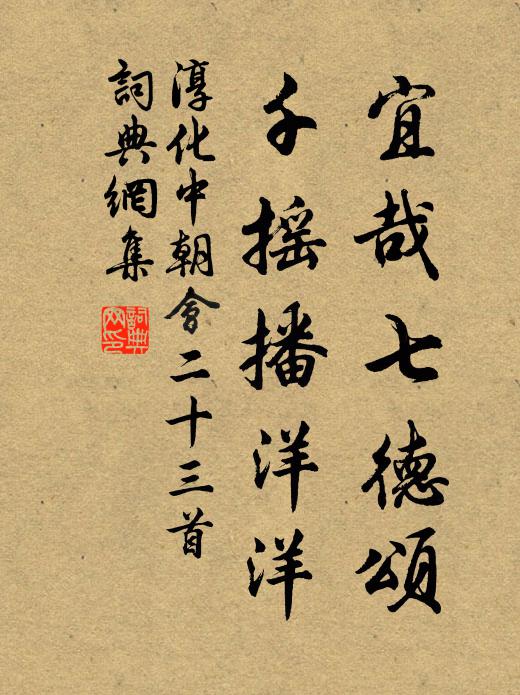 宜哉七德頌
千搖播洋洋
淳化中朝會二十三首
詞典網集
詞典网印